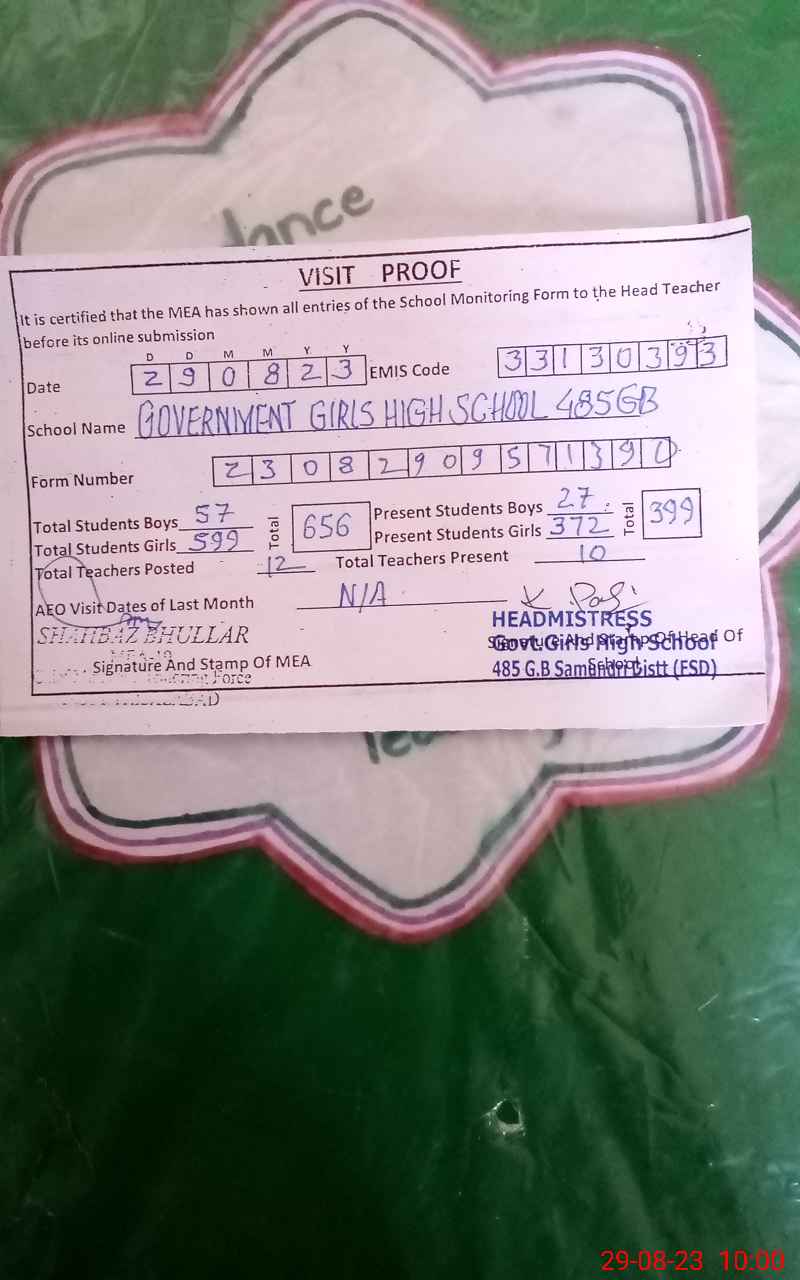 dance
VISIT PROOF
It is certified that the MEA has shown all entries of the School Monitoring Form to the Head Teacher
before its online submission
D D M M Y Y
Date 2 9 0 8 2 3 EMIS Code 3 3 1 3 0 3 9 3
School Name GOVERNMENT GIRLS HIGH SCHOOL 485GB
Form Number 2 3 0 8 2 9 0 9 5 7 1 3 9
Total Students Boys 57 Total 656 Present Students Boys 27 Total 399
Total Students Girls 599 Present Students Girls 372
Total Teachers Posted 12 Total Teachers Present 10
AEO Visit Dates of Last Month N/A
SHAHBAZ BHULLAR HEADMISTRESS
Signature And Stamp Of Head Of
Govt. Girls High School
Signature And Stamp Of MEA School
485 G.B Samundri Distt (FSD)
Force
29-08-23 10:00